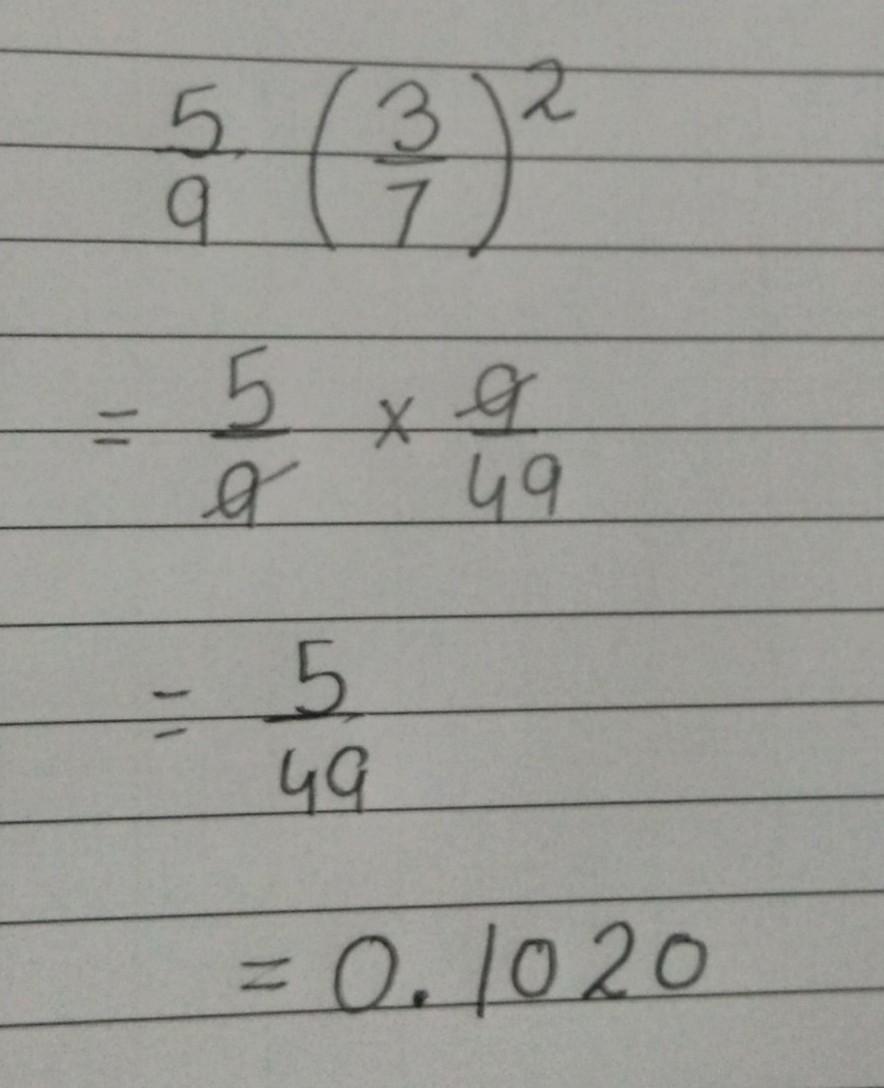 5/9 (3/7)²
= 5/9 × 9/49
= 5/49
= 0.1020